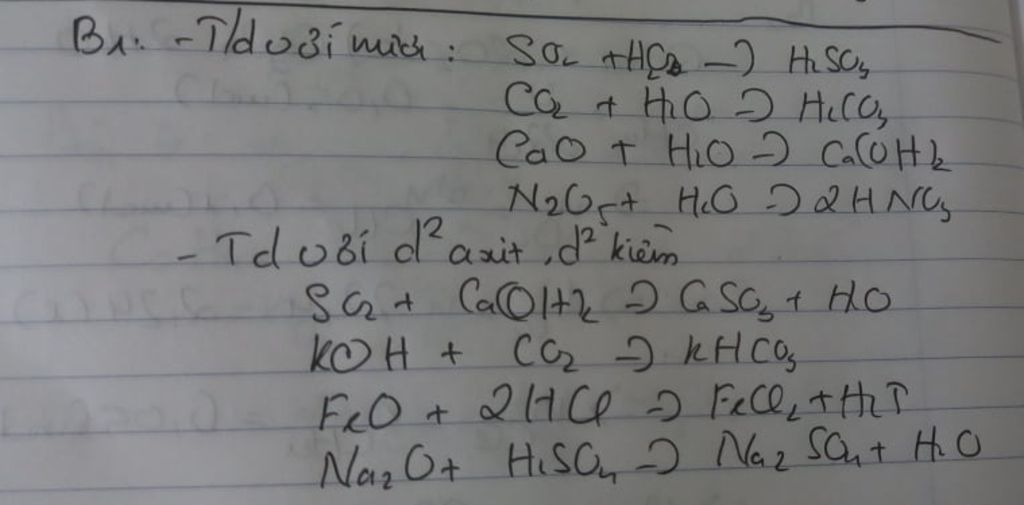 B1: - T/d với nước: SO2 + H2O → H2SO3
CO2 + H2O → H2CO3
CaO + H2O → Ca(OH)2
N2O5 + H2O → 2HNO3
- Td với d² axit, d² kiềm
SO2 + Ca(OH)2 → CaSO3 + H2O
KOH + CO2 → KHCO3
FeO + 2HCl → FeCl2 + H2↑
Na2O + H2SO4 → Na2SO4 + H2O